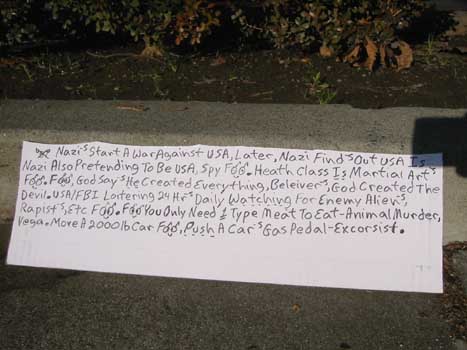 Nazi's Start A War Against USA, Later, Nazi Find's Out USA Is
Nazi Also Pretending To Be USA, Spy Fgg. Heath Class Is Martial Art's
Fgg. Fgg, God Say's He Created Everything, Beleiver's, God Created The
Devil. USA/FBI Loitering 24 Hr's Daily Watching For Enemy Alien's,
Rapist's, Etc Fgg. Fgg You Only Need 1 Type Meat To Eat-Animal Murder,
Vega. Move A 2000lb Car Fgg, Push A Car's Gas Pedal-Excorsist.